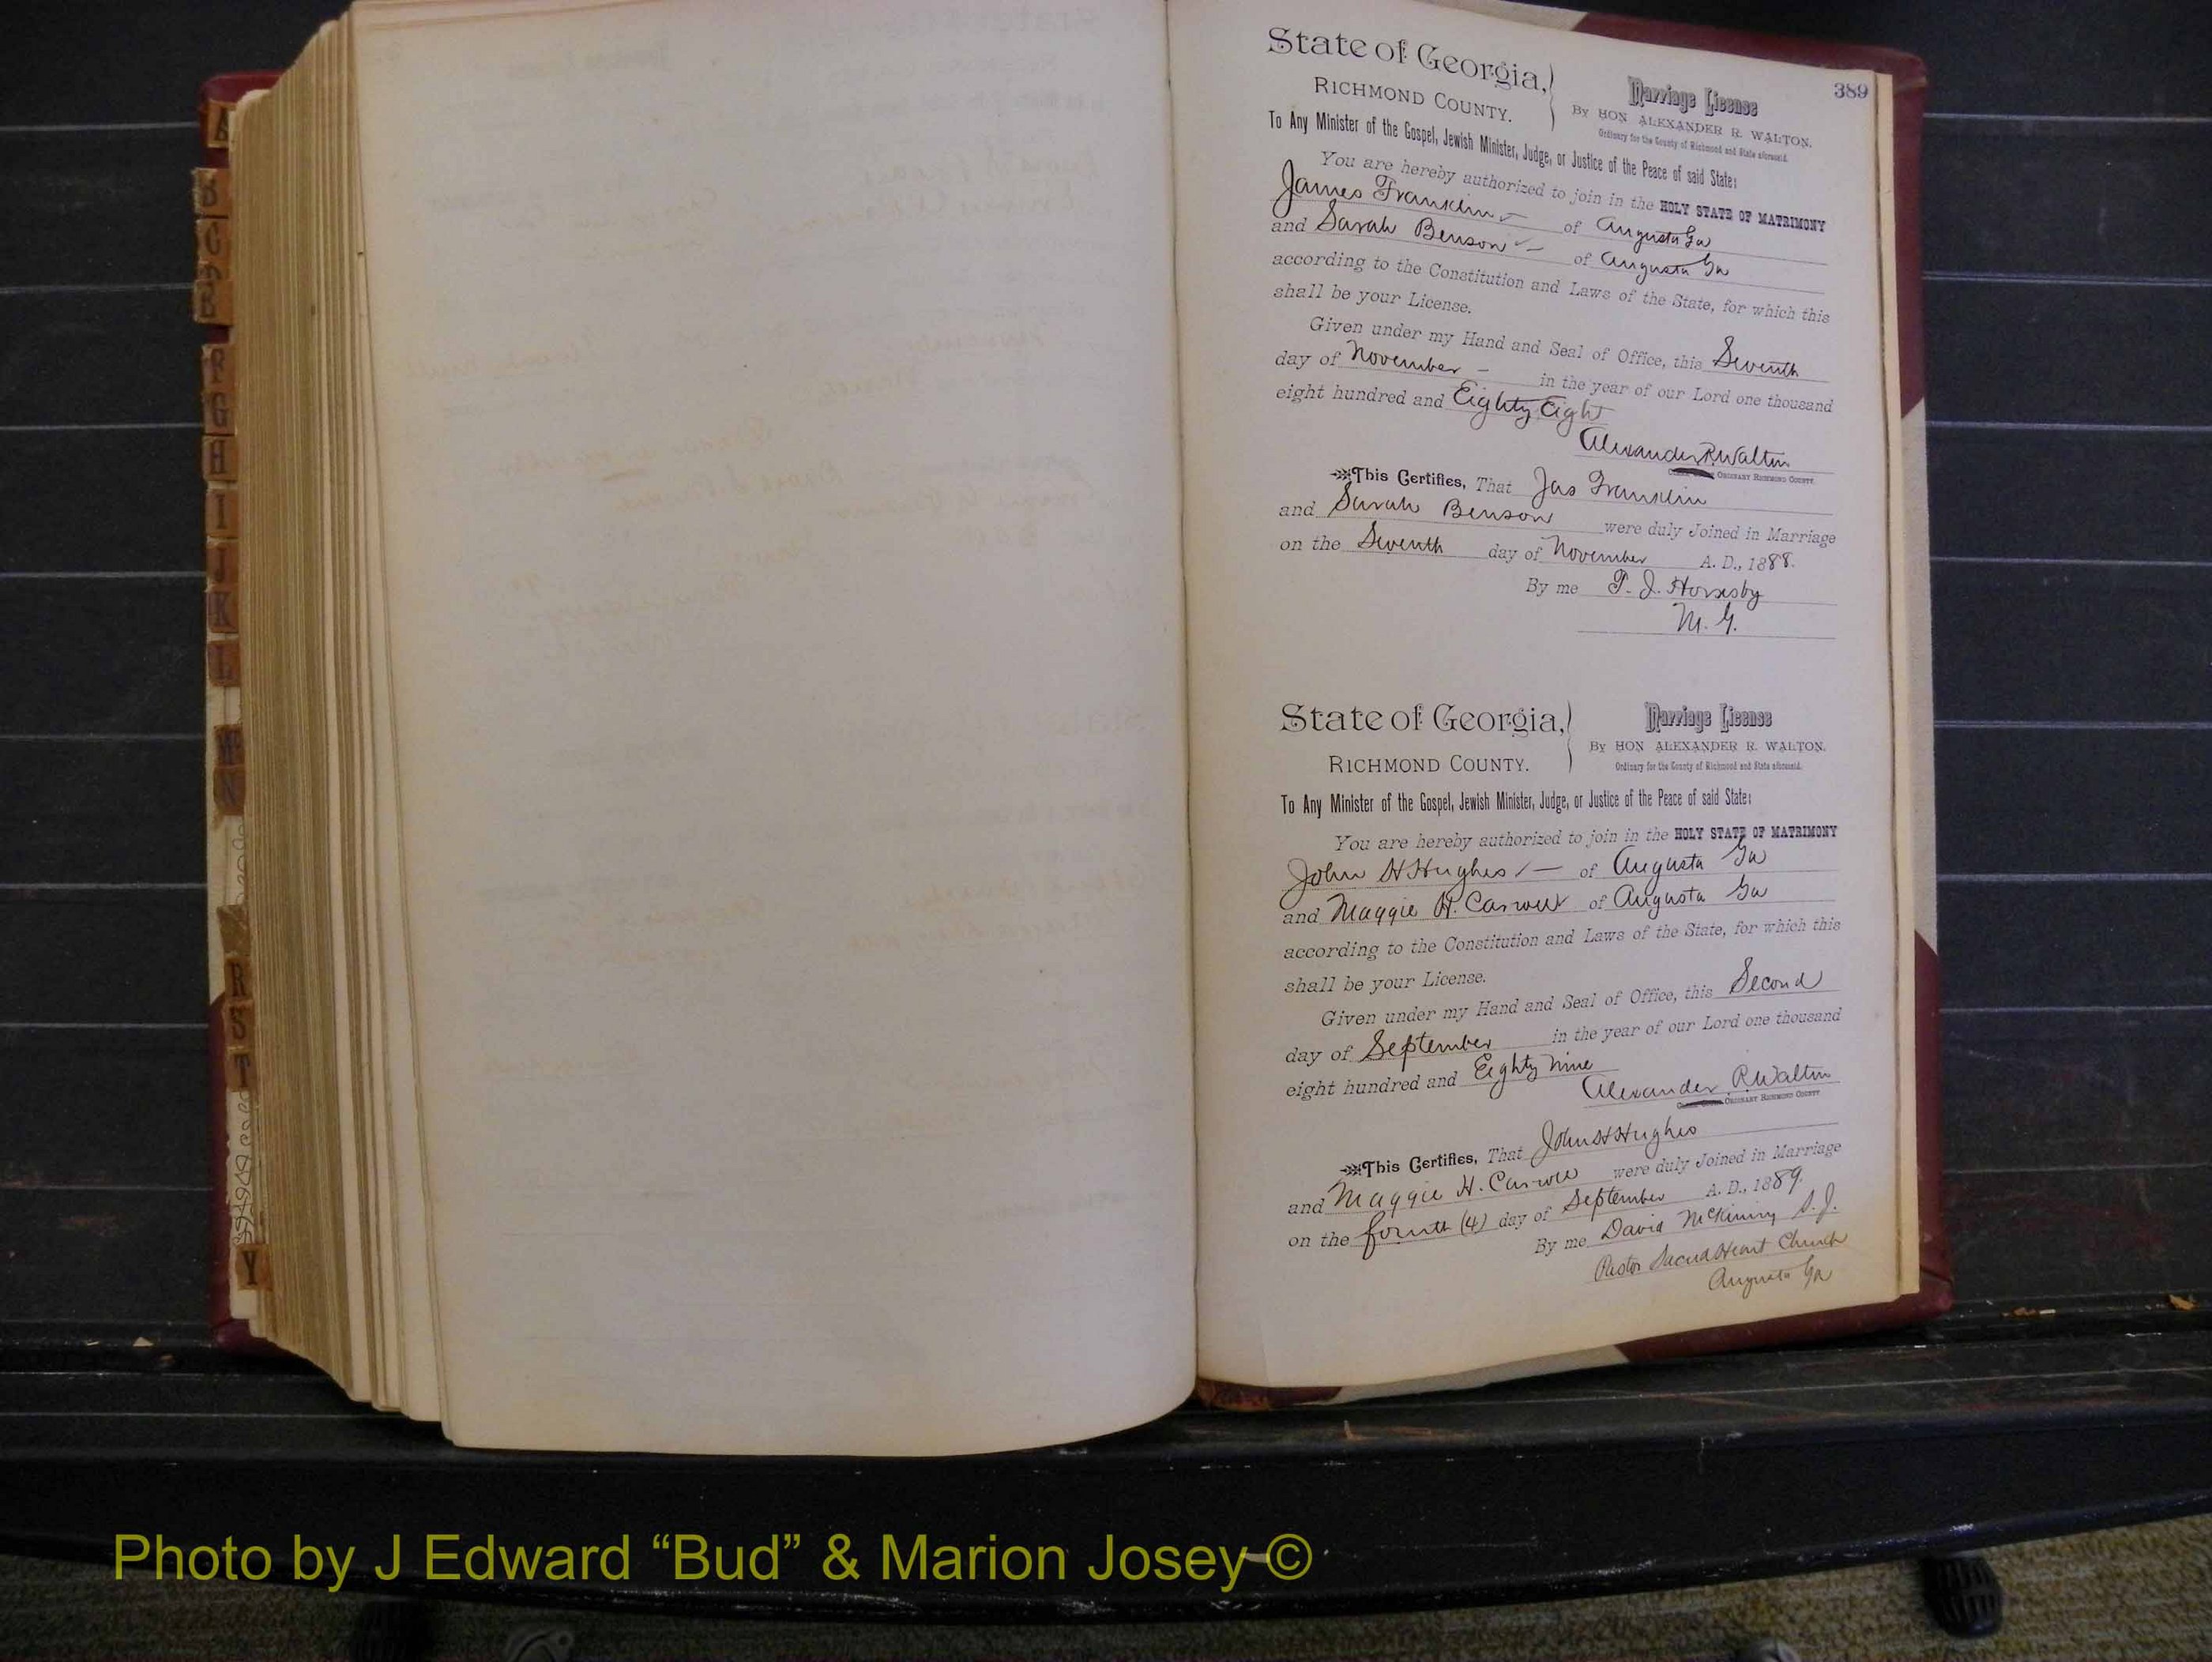 389
State of Georgia,
RICHMOND COUNTY.
Marriage License
By HON ALEXANDER R. WALTON.
Ordinary for the County of Richmond and State aforesaid.
To Any Minister of the Gospel, Jewish Minister, Judge, or Justice of the Peace of said State:
You are hereby authorized to join in the HOLY STATE OF MATRIMONY
James Franklin of Augusta Ga
and Sarah Benson of Augusta Ga
according to the Constitution and Laws of the State, for which this
shall be your License.
Given under my Hand and Seal of Office, this Seventh
day of November - in the year of our Lord one thousand
eight hundred and Eighty Eight
Alexander R. Walton
ORDINARY RICHMOND COUNTY.
This Certifies, That Jas Franklin
and Sarah Benson were duly Joined in Marriage
on the Seventh day of November A. D., 1888.
By me P. J. Hornsby
M. G.
State of Georgia,
RICHMOND COUNTY.
Marriage License
By HON ALEXANDER R. WALTON.
Ordinary for the County of Richmond and State aforesaid.
To Any Minister of the Gospel, Jewish Minister, Judge, or Justice of the Peace of said State:
You are hereby authorized to join in the HOLY STATE OF MATRIMONY
John H Hughes of Augusta Ga
and Maggie H. of Augusta Ga
according to the Constitution and Laws of the State, for which this
shall be your License.
Given under my Hand and Seal of Office, this Second
day of September in the year of our Lord one thousand
eight hundred and Eighty Nine
Alexander R. Walton
ORDINARY RICHMOND COUNTY
This Certifies, That John H Hughes
and Maggie H. were duly Joined in Marriage
on the fourth (4) day of September A. D., 1889.
By me David McKiniry S.J.
Pastor Sacred Heart Church
Augusta Ga
A
B
C
D
E
F
G
H
I
J
K
L
N
R
S
T
Y
Photo by J Edward “Bud” & Marion Josey ©